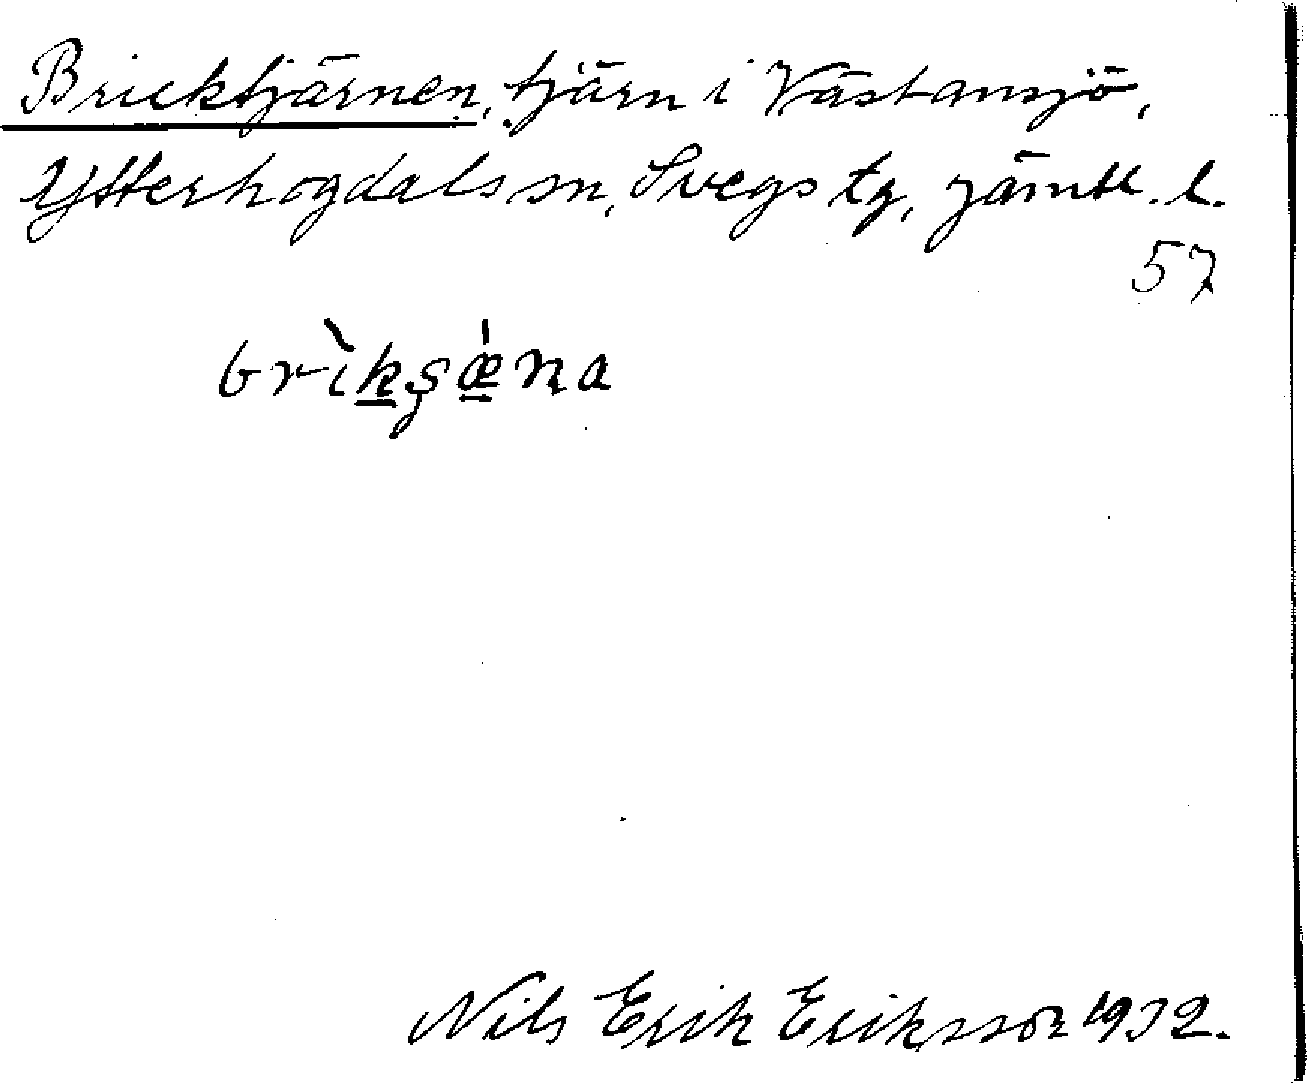 Bricktjärnen, tjärn i Västansjö,
Ytterhogdals sn, Svegs tg, Jämtl. l.
57
brìk̲şǽ̲na
Nils Erik Eriksson 1932.